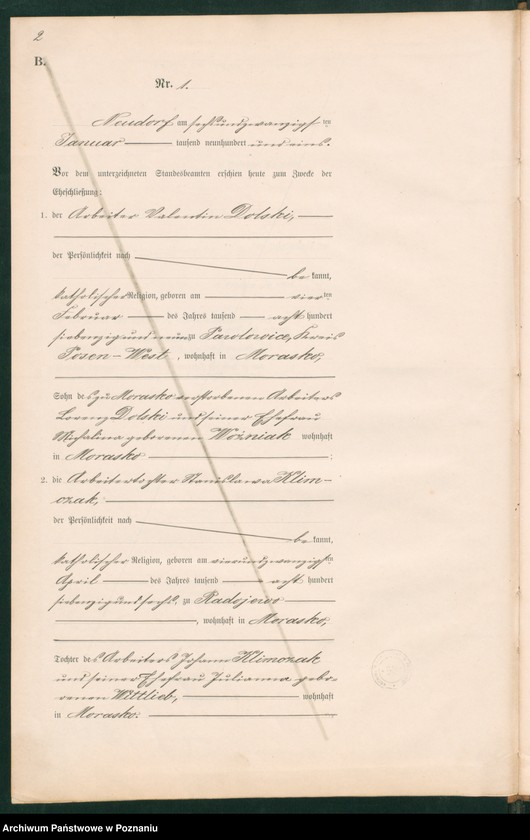 2
B.
Nr. 1.
Neudorf am sechsundzwanzigsten
Januar tausend neunhundert und eins.
Vor dem unterzeichneten Standesbeamten erschien heute zum Zwecke der
Eheschließung:
1. der Arbeiter Valentin Dolski,
der Persönlichkeit nach
bekannt,
katholischer Religion, geboren am vierten
Februar des Jahres tausend acht hundert
siebenzig und neun zu Pawlowice, Kreis
Posen-West, wohnhaft in Morasko,
Sohn des zu Morasko verstorbenen Arbeiters
Lorenz Dolski und seiner Ehefrau
Michalina geborenen Woźniak wohnhaft
in Morasko;
2. die Arbeitertochter Stanislawa Klim-
czak,
der Persönlichkeit nach
bekannt,
katholischer Religion, geboren am vierundzwanzigsten
April des Jahres tausend acht hundert
siebenzig und sechs, zu Radojewo
, wohnhaft in Morasko,
Tochter des Arbeiters Johann Klimczak
und seiner Ehefrau Julianna gebo-
renen Wittlieb, wohnhaft
in Morasko.
Archiwum Państwowe w Poznaniu